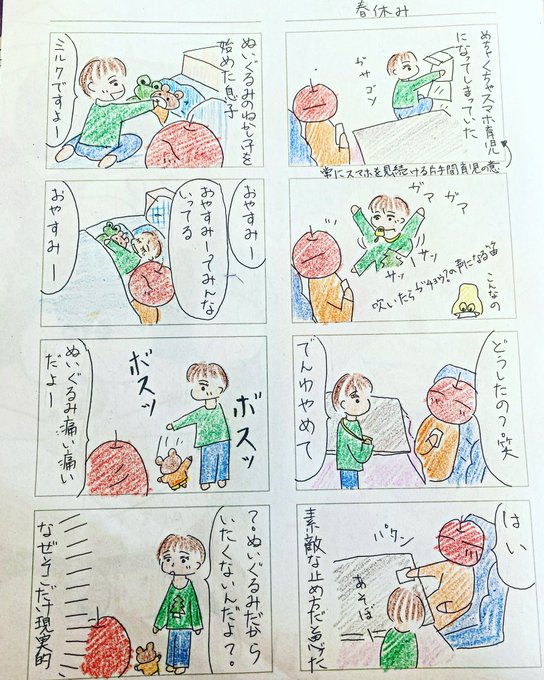 春休み
めちゃくちゃスマホ育児
になってしまっていた
ガサ
ゴソ
常にスマホを見続ける片手間育児の意
ガア
ガア
サッ
サッ
こんなの
吹いたらガチョウ?の声になる笛
どうしたの?笑
でんわやめて
はい
パタン
あそぼ
素敵な止め方だと思った
ぬいぐるみのねかし子を
始めた息子
ミルクですよー
おやすみー
おやすみーてみんな
いってる
おやすみー
ボスッ
ボスッ
ぬいぐるみ痛い痛い
だよー
?ぬいぐるみだから
いたくないんだよ?
なぜそこだけ現実的